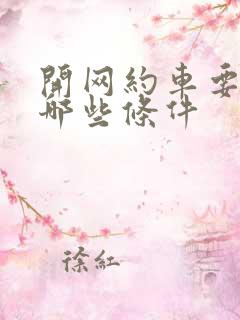 開网約車要
哪些條件
徐紅